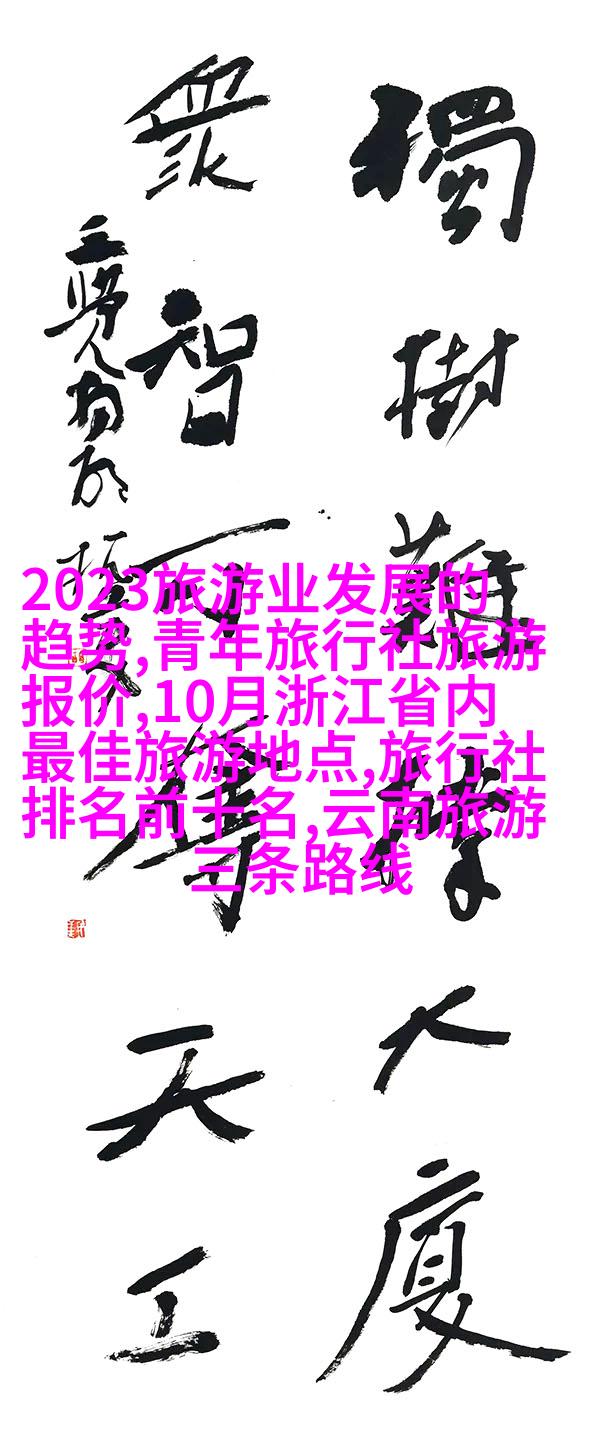 獨樹難撑大廈
衆智可奪天工
2023旅游业发展的
趋势,青年旅行社旅游
报价,10月浙江省内
最佳旅游地点,旅行社
排名前十名,云南旅游
三条路线